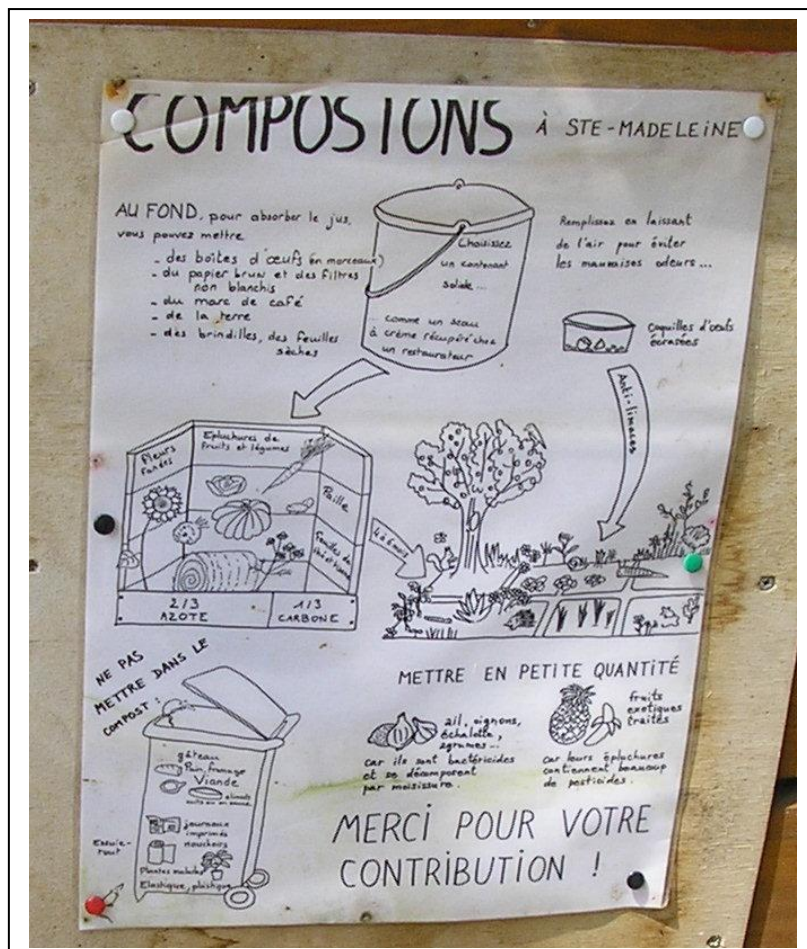 COMPOSTONS À STE-MADELEINE
AU FOND, pour absorber le jus,
vous pouvez mettre
- des boîtes d'œufs (en morceaux)
- du papier brun et des filtres
non blanchis
- du marc de café
- de la terre
- des brindilles, des feuilles
sèches
Choisissez
un contenant
solide...
... comme un seau
à crème récupéré chez
un restaurateur
Remplissez en laissant
de l'air pour éviter
les mauvaises odeurs...
Coquilles d'œufs
écrasées
Anti-limaces
Fleurs
fanées
Epluchures de
fruits et légumes
Paille
Feuilles de
2/3
AZOTE
1/3
CARBONE
4 à 6 mois
NE PAS
METTRE DANS LE
COMPOST :
gâteau
Pain, fromage
Viande
aliments
journaux
imprimés
mouchoirs
Essuie-
tout
Plantes malades
Elastique, plastique
METTRE EN PETITE QUANTITÉ
ail, oignons,
échalotte,
agrumes...
car ils sont bactéricides
et se décomposent
par moisissure.
fruits
exotiques
traités
car leurs épluchures
contiennent beaucoup
de pesticides.
MERCI POUR VOTRE
CONTRIBUTION !